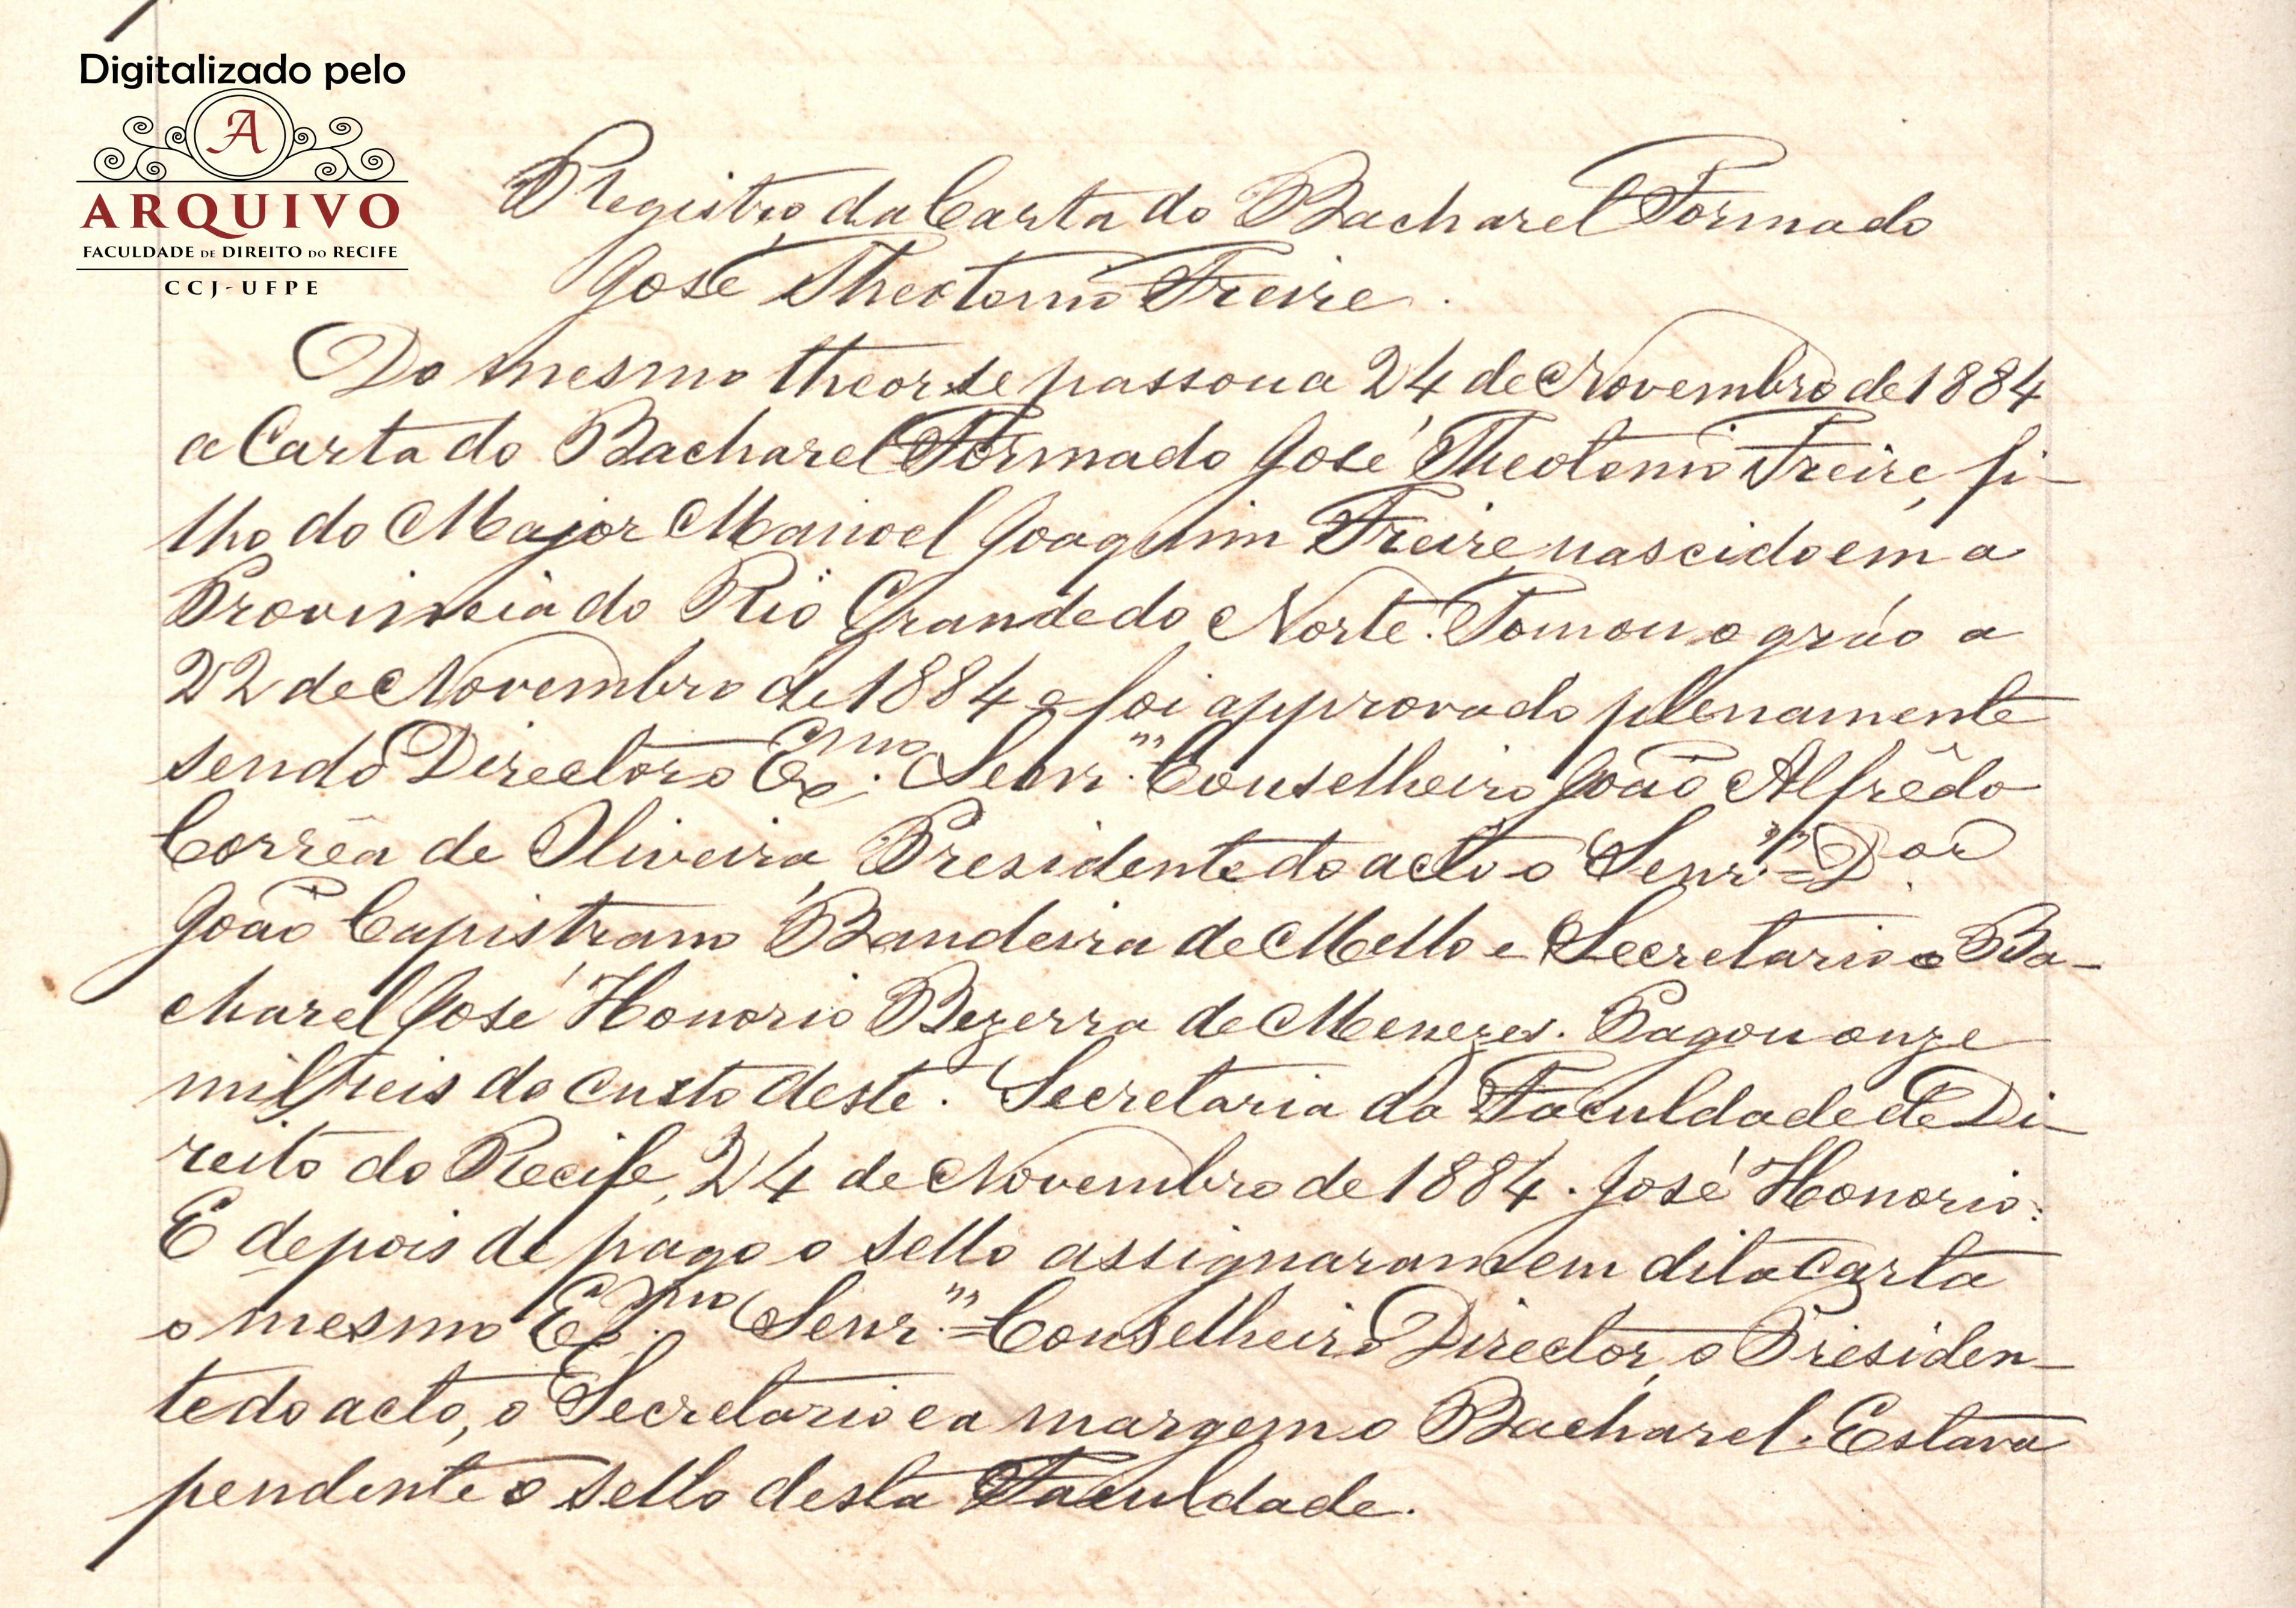 Digitalizado pelo
A
ARQUIVO
FACULDADE DE DIREITO DO RECIFE
CCJ-UFPE
Registro da Carta do Bacharel Formado
José Theotonio Freire.
Do mesmo theor se passou a 24 de Novembro de 1884
a Carta do Bacharel Formado José Theotonio Freire, fi-
lho do Major Manoel Joaquim Freire, nascido em a
Provincia do Rio Grande do Norte. Tomou o gráo a
22 de Novembro de 1884 e foi approvado plenamente
sendo Director o Exmo. Senr. Conselheiro João Alfrêdo
Corrêa de Oliveira, Presidente do acto o Senr. = Dor.
João Capistrano Bandeira de Mello e Secretario o Ba-
charel José Honorio Bezerra de Menezes. Pagou onze
mil reis do custo deste. Secretaria da Faculdade de Di-
reito do Recife, 24 de Novembro de 1884. José Honorio.
E depois de pago o sello assignaram em dita Carta
o mesmo Exmo. Senr. = Conselheiro Director, o Presiden-
te do acto, o Secretario e a margem o Bacharel. Estava
pendente o sello desta Faculdade.